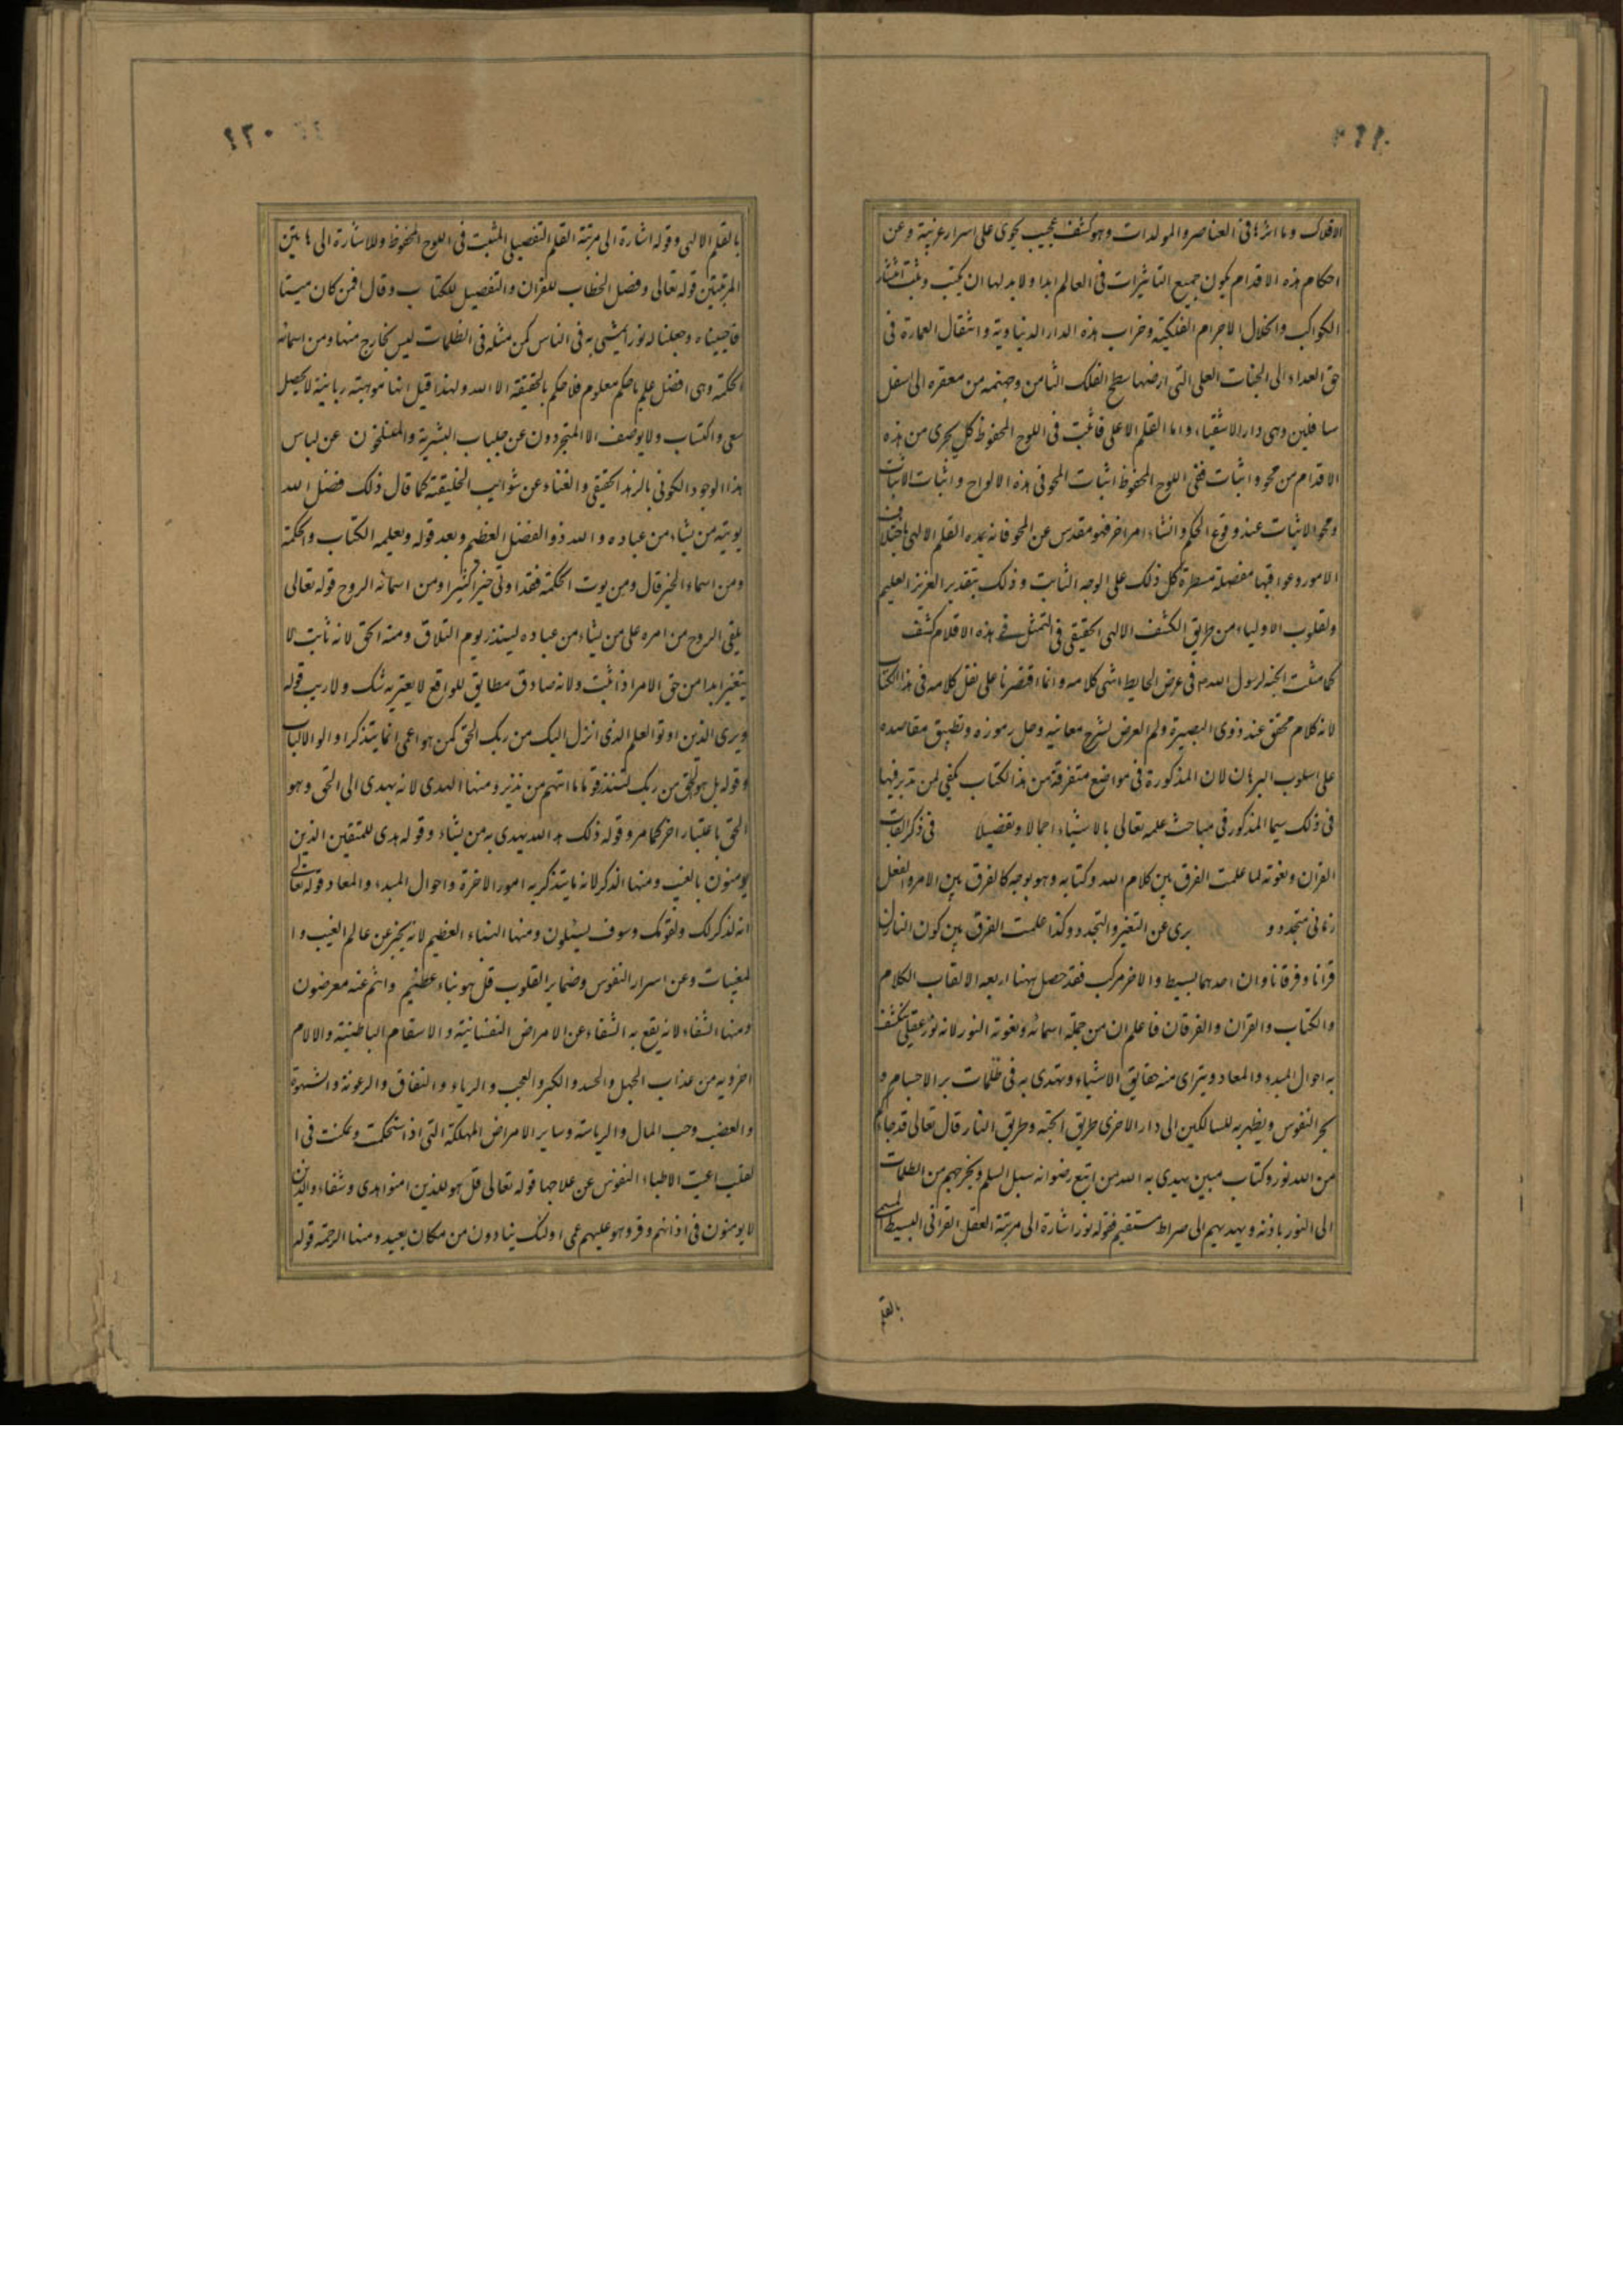 الافلاك وما اثرها فى العناصر والمولدات وهو كشف عجيب يحوى على اسرار غريبة وعن
احكام هذه الاقدام يكون جميع التاثيرات فى العالم ابدا ولا بد لها ان يكتب ويثبت انتثار
الكواكب وانحلال الاجرام الفلكية وخراب هذه الدار الدنياوية وانتقال العمارة فى
حق العداد الى الجنات العلى التى ارضها سطح الفلك الثامن وجهنمه من مقعره الى اسفل
سافلين وهى دار الاشقياء واما القلم الاعلى فاثبت فى اللوح المحفوظ كل يجرى من هذه
الاقدام من محو واثبات ففى اللوح المحفوظ اثبات المحو فى هذه الالواح واثبات الاثبات
ومحو الاثبات عند وقوع الحكم وانشاء امر اخر فهو مقدس عن المحو فانه يمده القلم الالهى باختلاف
الامور وعواقبها مفصلة مسطرة كل ذلك على الوجه الثابت وذلك بتقدير العزيز العليم
ولقلوب الاولياء من طريق الكشف الالهى الحقيقى فى التمثل فى هذه الاقلام كشف
كما مثلت الجنة لرسول الله ص فى عرض الحايط انتهى كلامه وانما اقتصرنا على نقل كلامه فى هذا الكتاب
لانه كلام محقق عند ذوى البصيرة ولم العرض لشرح معانيه وحل رموزه وتطبيق مقاصده
على اسلوب البرهان لان المذكورة فى مواضع متفرقة من هذا الكتاب يكفى لمن تدبر فيها
فى ذلك سيما المذكور فى مباحث علمه تعالى بالاشياء اجمالا وتفضيلا فى ذكر القاب
القران ونعوته لما علمت الفرق بين كلام الله وكتابه وهو بوجه كالفرق بين الامر والفعل
زمانى متجدد و برى عن التغير والتجدد وكذا علمت الفرق بين كون النازل
قرانا وفرقانا وان احدهما بسيط والاخر مركب فقد حصل ههنا اربعه الالقاب الكلام
والكتاب والقران والفرقان فاعلم ان من جملة اسمائه ونعوته النور لانه نور عقلى ينكشف
به احوال المبدء والمعاد ويتراى منه حقايق الاشياء ويهتدى به فى ظلمات بر الاجسام و
بحر النفوس ويظهر به للسالكين الى دار الاخرى طريق الجنة وطريق النار قال تعالى قد جاءكم
من الله نور وكتاب مبين يهدى به الله من اتبع رضوانه سبل السلم ويخرجهم من الظلمات
الى النور باذنه ويهديهم الى صراط مستقيم فقوله نور اشارة الى مرتبة العقل القرانى البسيط المسمى
بالقلم
٤٣٠
بالقلم الالهى وقوله اشارة الى مرتبة القلم التفصيلى المثبت فى اللوح المحفوظ وللاشارة الى هاتين
المرتبتين قوله تعالى وفصل الخطاب للقران والتفصيل للكتاب وقال افمن كان ميتا
فاحييناه وجعلنا له نورا يمشى به فى الناس كمن مثله فى الظلمات ليس بخارج منها ومن اسمائه
الحكمة وهى افضل علم باحكم معلوم فلا حكم بالحقيقة الا الله ولهذا قيل انها موهبة ربانية لا يحصل
بسعى واكتساب ولا يوصف الا المتجردون عن جلباب البشرية والمنسلخون عن لباس
هذا الوجود الكونى بالزهد الحقيقى والفناء عن شوائب الخليقة كما قال ذلك فضل الله
يوتيه من يشاء من عباده والله ذو الفضل العظيم وبعد قوله ويعلمه الكتاب والحكمة
ومن اسماء الخير قال ومن يوت الحكمة فقد اوتى خيرا كثيرا ومن اسمائه الروح قوله تعالى
يلقى الروح من امره على من يشاء من عباده لينذر يوم التلاق ومنه الحق لانه ثابت لا
يتغير ابدا من حق الامر اذا ثبت ولانه صادق مطابق للواقع لا يعتريه شك ولا ريب قوله
ويرى الذين اوتوا العلم الذى انزل اليك من ربك الحق كمن هو اعمى انما يتذكر اولوا الالباب
وقوله بل هو الحق من ربك لتنذر قوما ما اتيهم من نذير ومنها الهدى لانه يهدى الى الحق وهو
الحق باعتبار اخر كما مر وقوله ذلك هد الله يهدى به من يشاء وقوله هدى للمتقين الذين
يومنون بالغيب ومنها الذكر لانه ما يتذكر به امور الاخرة واحوال المبدء والمعاد قوله تعالى
انه لذكر لك ولقومك وسوف يسئلون ومنها النباء العظيم لانه يخبر عن عالم الغيب وا
لمغيبات وعن اسرار النفوس وضماير القلوب قل هو نباء عظيم وانتم عنه معرضون
ومنها الشفاء لانه يقع به الشفاء عن الامراض النفسانية والاسقام الباطنية والالام
اخرويه من عذاب الجهل والحسد والكبر والعجب والرياء والنفاق والرعونة والشهوة
والغضب وحب المال والرياسة وساير الامراض المهلكة التى اذا استحكمت وتمكنت فى ا
لقلب اعيت الاطباء النفوس عن علاجها قوله تعالى قل هو للذين امنوا هدى وشفاء والذين
لا يومنون فى اذانهم وقر وهو عليهم عمى اولئك ينادون من مكان بعيد ومنها الرحمة قوله